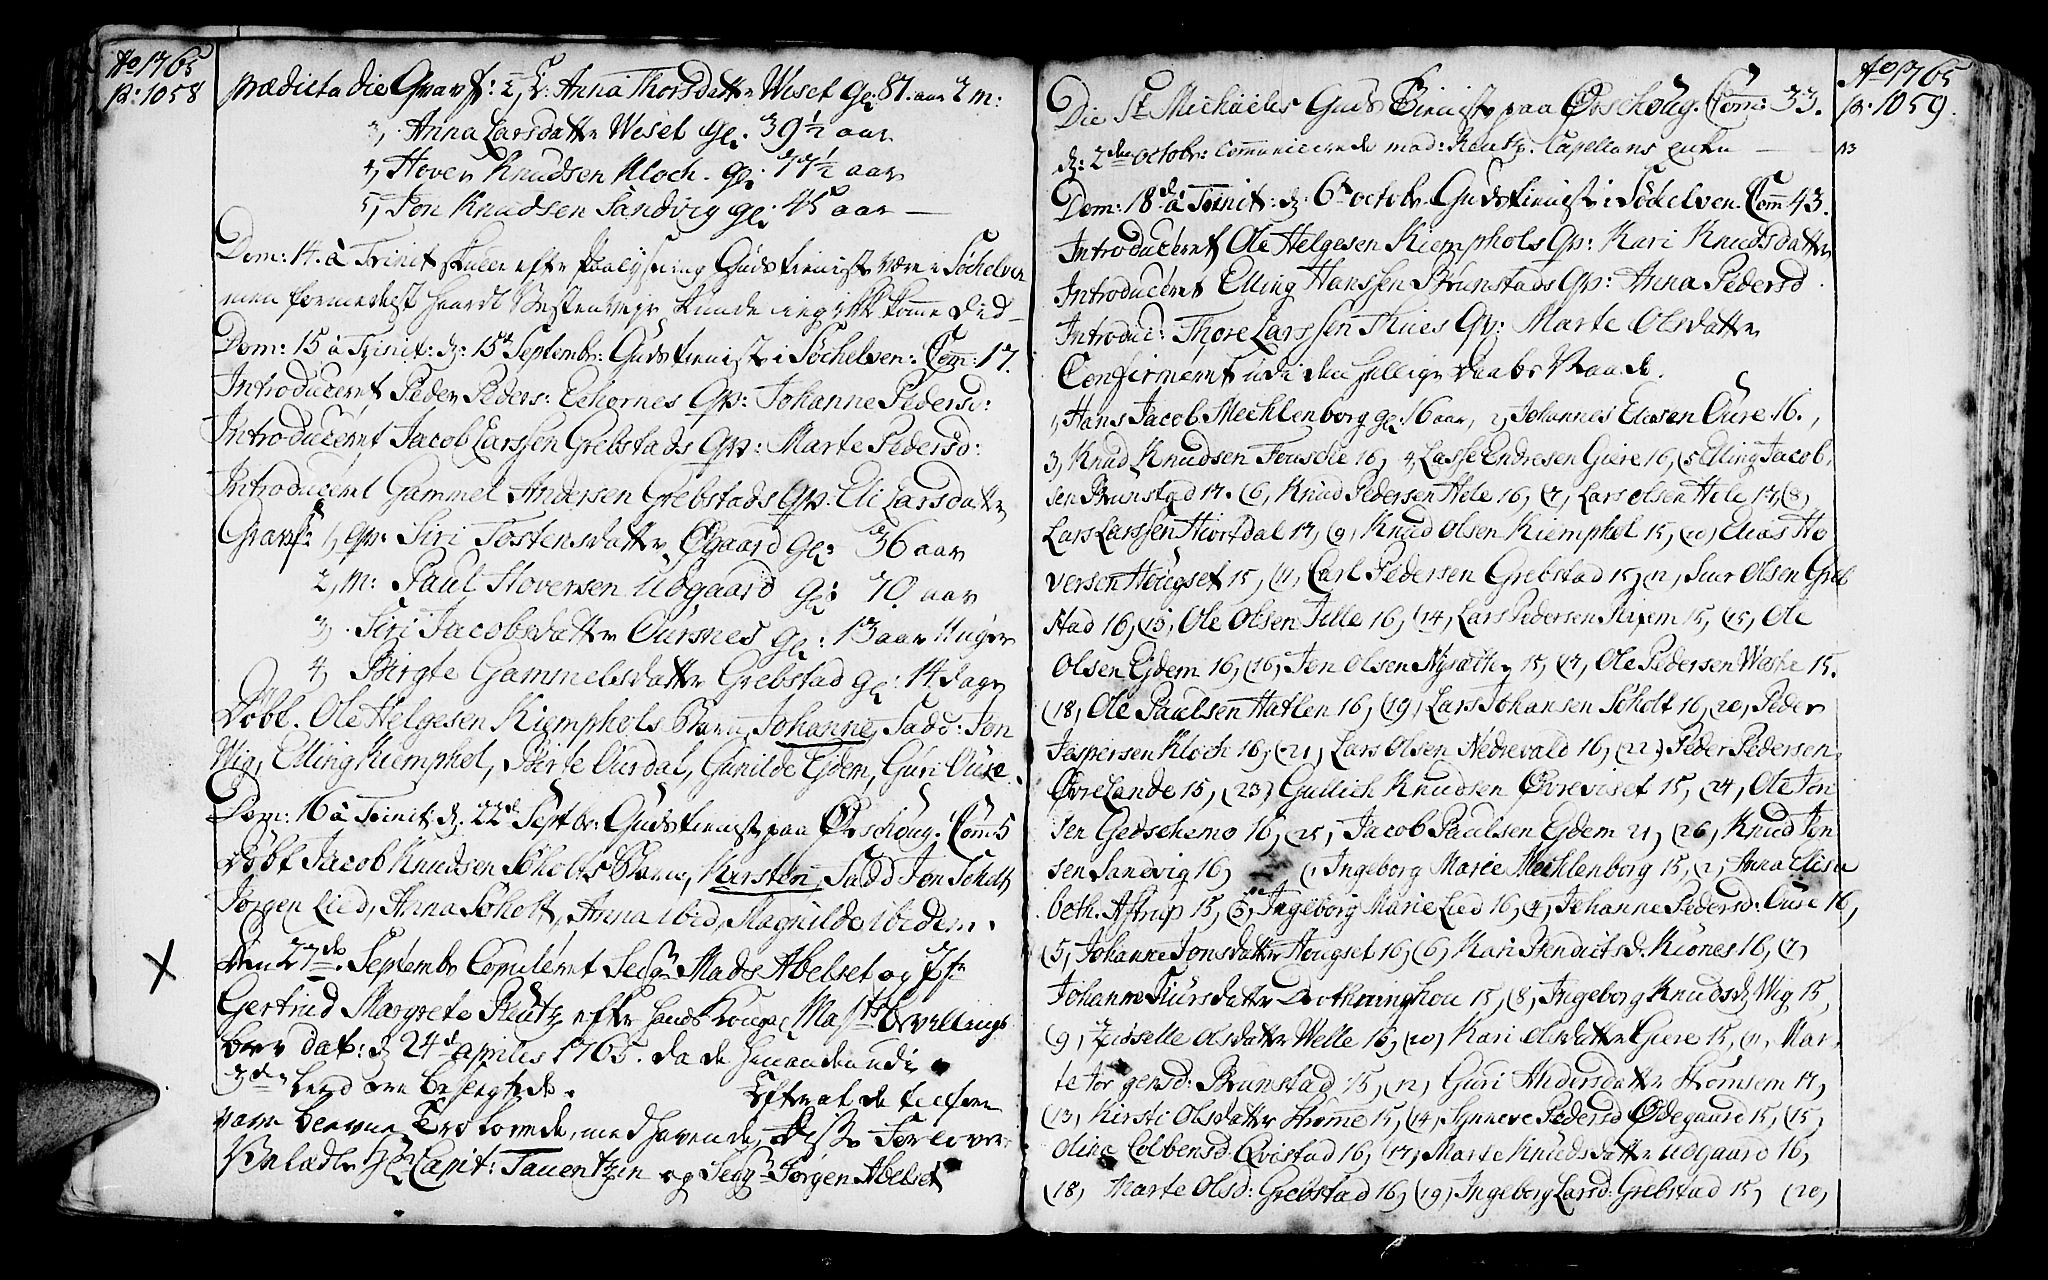 Ao 1765
p: 1058
prædicta die Gravf: 2, E. Anna Thorsdatter Weset gl: 87. aar 2 m:
3, Anna Larsdatter Weset gl: 39½ aar
4, Hover Knudsen Kloch. gl: 77½ aar
5, Jon Knudsen Sandvig gl: 45 aar
Dom: 14. à Trinit skulle efter Gudstienist være i Søchelven
men formedelst haardt kunde ieg ikke komme did
Dom: 15 à Trinit: d: 15de Septembr: Gudstienist i Søchelven. Com: 17.
Introduceret Peder Peders: Echornes Qv: Johanne Pedersd:
Introduceret Jacob Larssen Grebstads Qv: Marte Pedersd:
Introduceret Gammel Andersen Grebstads Qv. Eli Larsdatter
Gravf: 1, qv: Siri Tostensdatter Øgaard gl: 36 aar
2, m: Paul Hoversen Udgaard gl: 70. aar
3, Siri Jacobsdatter Aursnes gl: 13 aar 4 uger
4, Birgte Gammelsdatter Grebstad gl: 14 dage
Døbt. Ole Helgesen Kiemphols Barn, Johanne, Fadd: Jon
Wig, Elling Kiemphol, Birte Aurdal, Gunilde Ejdem, Guri Aure.
Dom: 16 à Trinit: d. 22de Septbr: Gudstienist paa Ørschoug. Com: 5
Døbt Jacob Knudsen Søholts Barn, Kirsten, Fadd Jon Søholt
Jørgen Lied, Anna Søholt, Anna ibid, Magnilde ibidem.
Den 27de Septembr Copuleret Sedgr Mads Abelset og Jfr
Gertrud Margrete Reutz efter hands Konge Maysts bevillings
brev dat: d 24de aprilis 1765. da de hinanden udi
3die leed ere besvogrede. Efter at de
Forlover
Velædle Hr Capit: Tauentzin og Sedgr Jørgen Abelset
Ao 1765
p. 1059.
Die St Michaelis Guds Tieniste paa Ørschoug. Com: 33.
d: 2den octobr: Communicerede mad: Reutz, Capellans enke 13
Dom: 18de à Trinit: d. 6te octobr Gudstienist i Søchelven Com 43.
Introduceret Ole Helgesen Kiemphols Qv: Kari Knudsdatter
Introduceret Elling Hanssen Brunstads Qv: Anna Pedersd.
Introduc: Thore Larssen Thues Qv: Marte Olsdatter
Confirmeret udi den hellige Daabs Naade.
1, Hans Jacob Mechlenborg gl: 16 aar, 2, Johannes Eliesen Aure 16.,
3, Knud Knudsen Fousche 16, 4, Lasse Endresen Giere 16, (5 Elling Jacob
sen Brunstad 17. (6, Knud Pedersen Hele 16, (7, Lars Olsen Hele 17, (8,
Lars Larssen Hiortdal 17, (9, Knud Olsen Kiemphol 15, (10, Elias Ho
versen Hougset 15, (11, Carl Pedersen Grebstad 15, (12, Siur Olsen Greb
stad 16, (13, Ole Olsen Tille 16, (14, Lars Pedersen 15, (15, Ole
Olsen Ejdem 16, (16, Jon Olsen Nysætter 15, (17, Ole Pedersen Weste 15.
(18, Ole Paulsen Hatlen 16, (19, Lars Johansen Søholt 16, 20, Peder
Jespersen Kloch 16, (21, Lars Olsen Nedrevald 16, (22, Peder Pedersen
Øvre Lande 15, (23, Gullich Knudsen Øvreviset 15, (24, Ole Jon
sen Gerschemo 16, (25, Jacob Paulsen Ejdem 21, (26, Knud Jon
sen Sandvig 16, (1, Ingeborg Marie Mechlenborg 15, (2, Anna Elisa
beth Astrup 15, (3, Ingeborg Marie Lied 16, (4, Johanne Pedersd: Aure 16,
(5, Johanne Jonsdatter Hougset 16, (6, Kari Bendicts d. Kiønes 16, (7,
Johanne Siursdatter Drothninghou 15, (8, Ingeborg Knuds d. Wig 15,
(9, Zidselle Olsdatter Welle 16, (10, Kari Olsdatter Giere 15, (11, Mar
te Jørgensd: Brunstad 15, (12, Guri Andersdatter Stromsem 17,
(13, Kirsti Olsdatter Strømme 15, (14, Synneve Pedersd Ødegaard 15, (15,
Olina Colbensd. Qvistad 16, (17, Marte Knudsdatter Udgaard 16,
(18, Marte Olsd: Grebstad 16, (19, Ingeborg Larsd: Grebstad 15, (20,